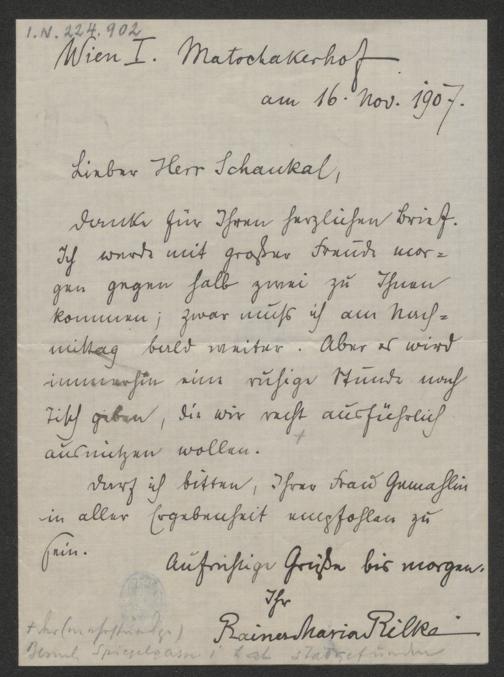 I.N. 224.902
Wien I. Matschakerhof
am 16. Nov. 1907.
Lieber Herr Schaukal,
danke für Ihren herzlichen Brief.
Ich werde mit großer Freude mor=
gen gegen halb zwei zu Ihnen
kommen; zwar muß ich am Nach=
mittag bald weiter. Aber es wird
immerhin eine ruhige Stunde nach
Tisch geben, die wir recht ausführlich
ausnützen wollen.
Darf ich bitten, Ihrer Frau Gemahlin
in aller Ergebenheit empfohlen zu
sein.
Aufrichtige Grüße bis morgen.
Ihr
Rainer Maria Rilke
+ der (mehrstündige)
Besuch Spiegelgasse hat stattgefunden